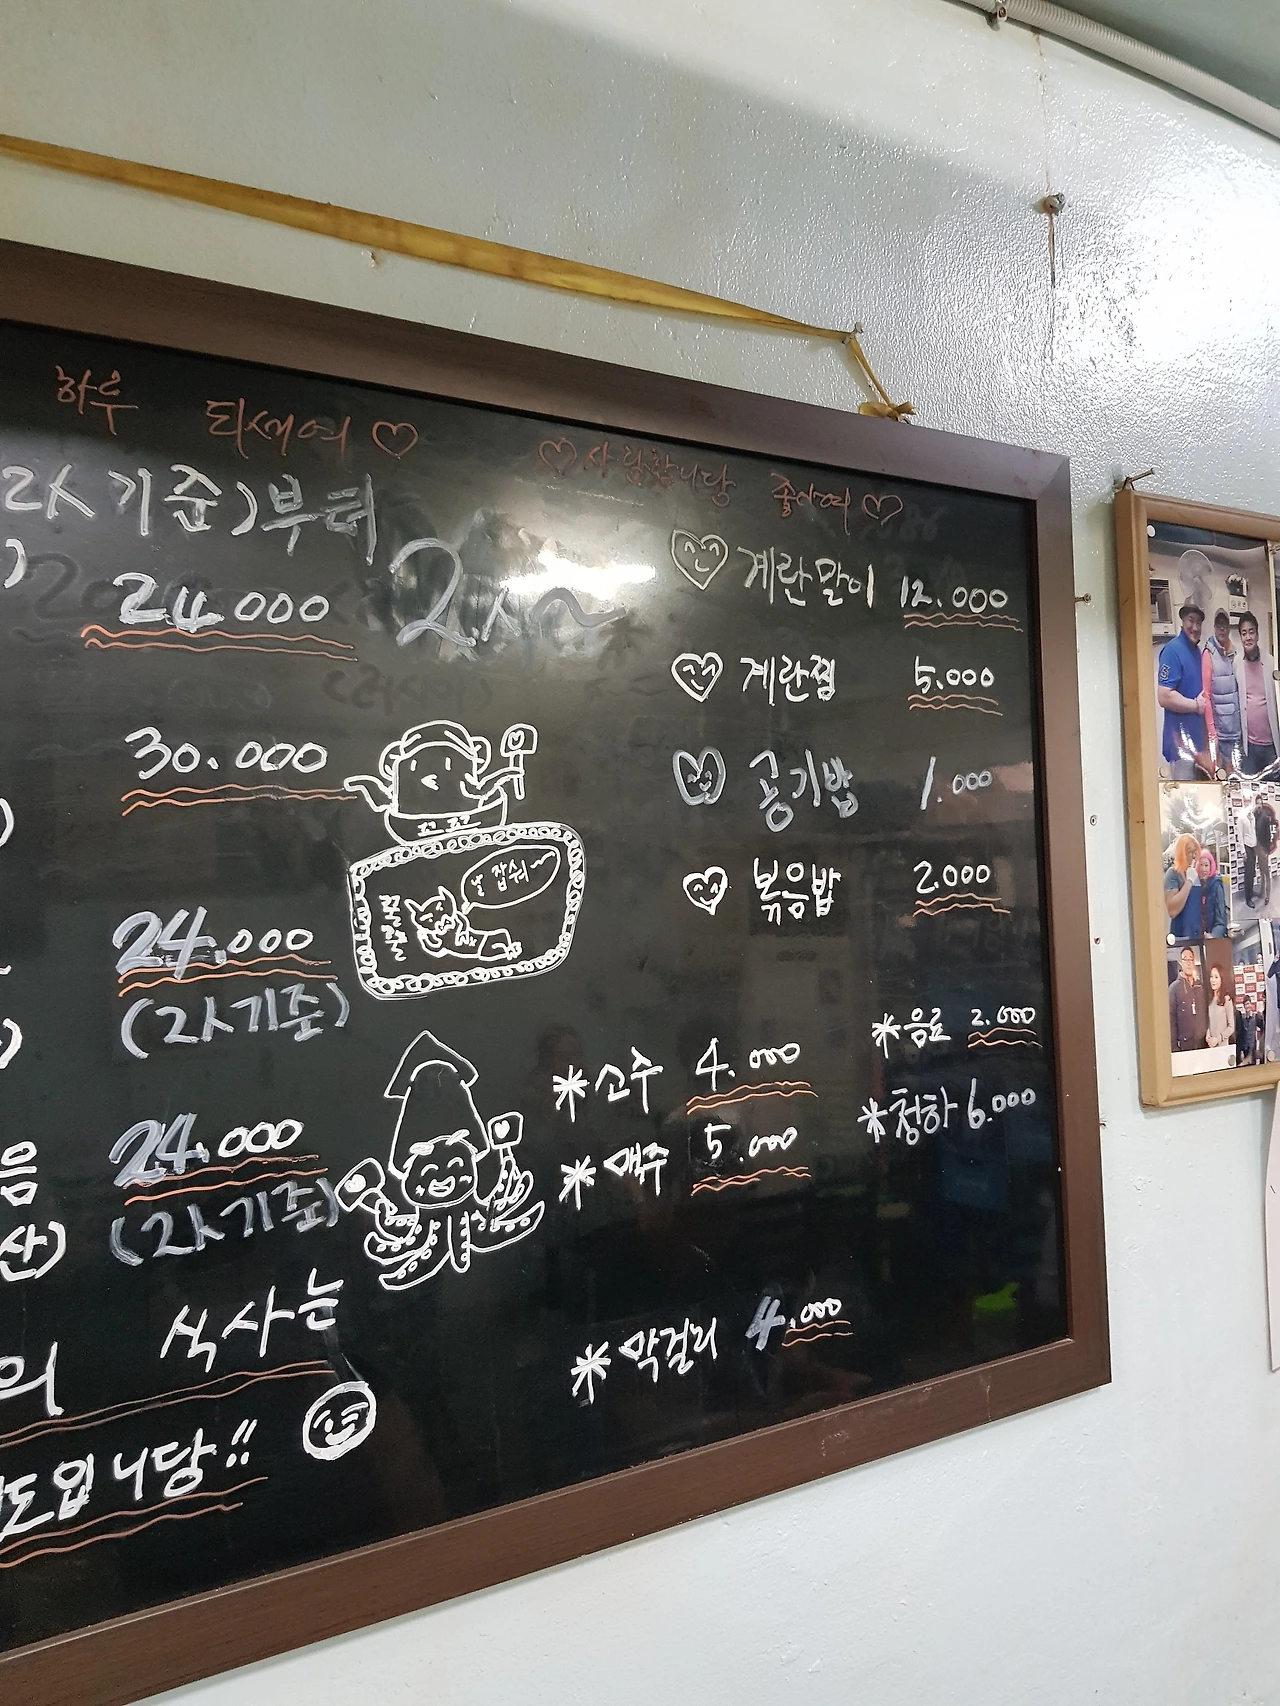 하루 되세여♡
♡사랑합니당 좋아여♡
2人기준)부터
24.000 2人~
30.000
24.000
(2人기준)
24.000
(2人기준)
음
산)
의 식사는
도입니당!!
날 잡숴~
계란말이 12.000
계란찜 5.000
공기밥 1.000
볶음밥 2.000
*소주 4.000
*맥주 5.000
*음료 2.000
*청하 6.000
*막걸리 4.000